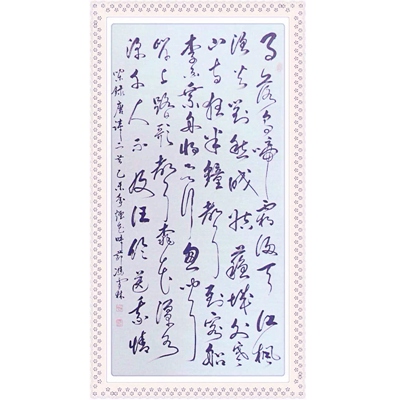 月落烏啼霜滿天江枫
渔火对愁眠姑蘇城外寒
山寺夜半鐘声到客船
李白乘舟将欲行忽闻
岸上踏歌声桃花潭水
深千尺不及汪伦送我情
录唐诗二首乙未年